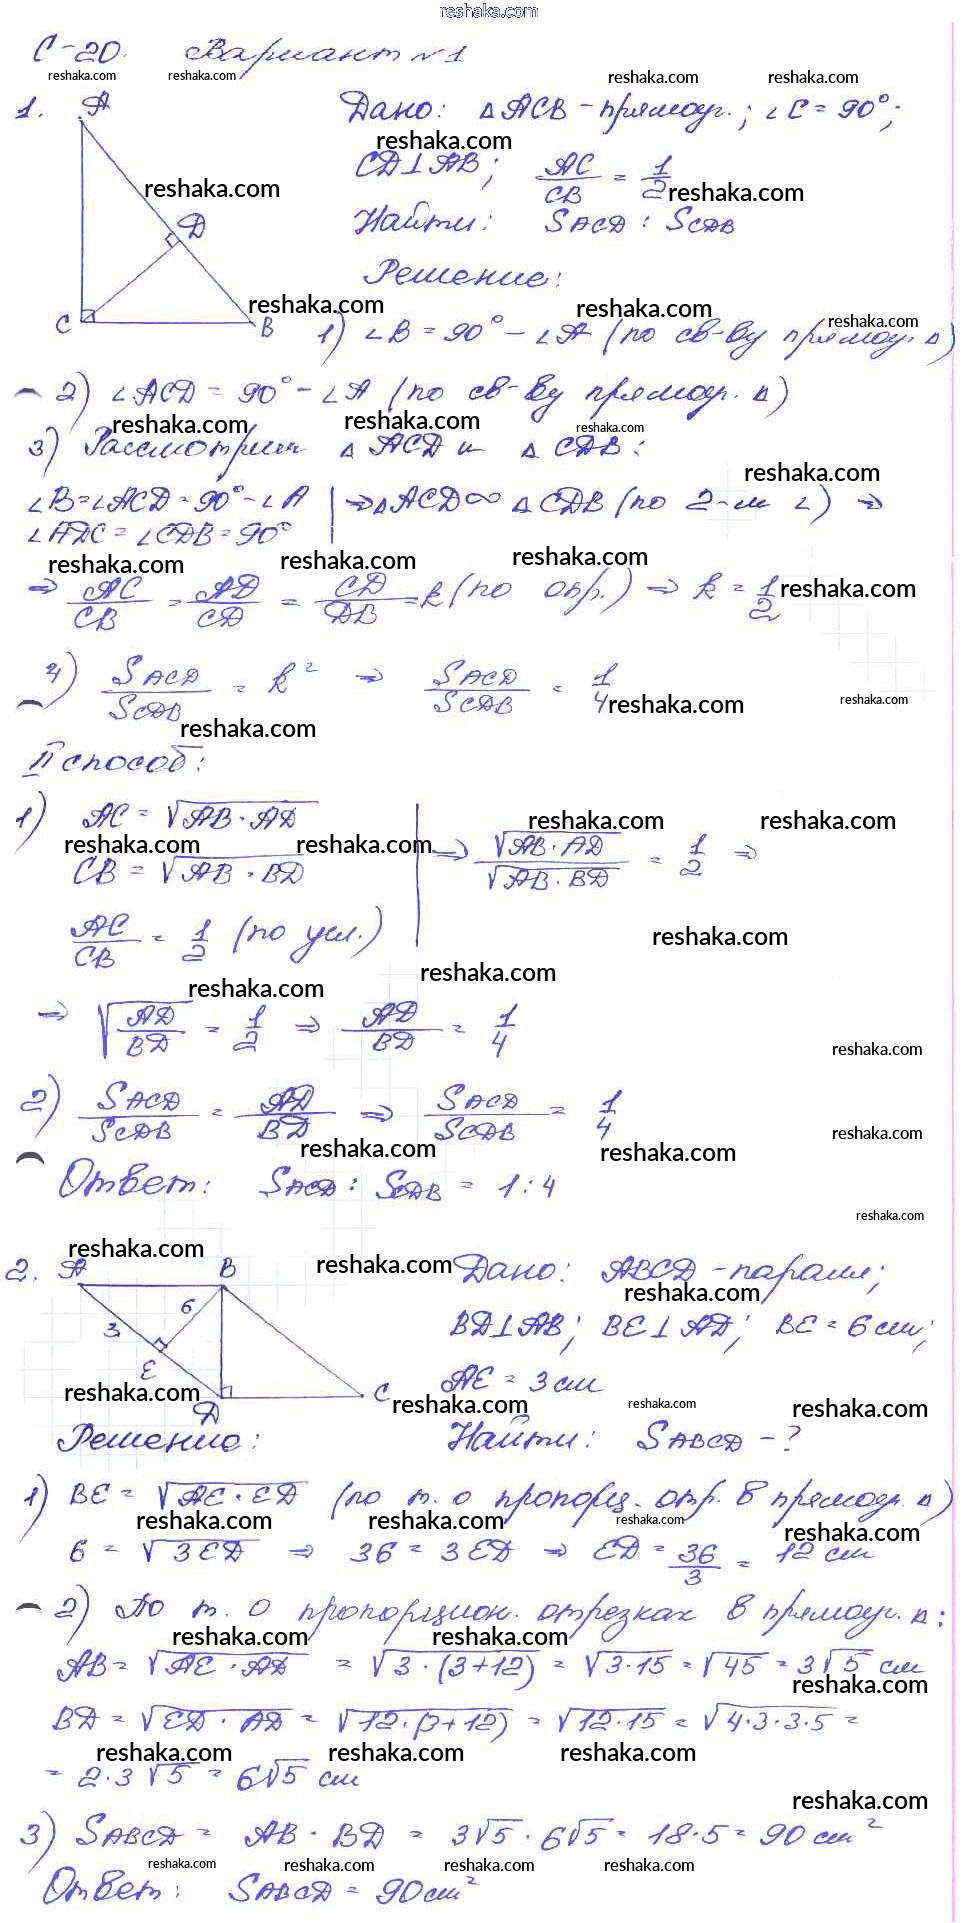 reshaka.com
С-20. Вариант №1
1. Дано: △ACB - прямоуг.; ∠C = 90°;
CD⊥AB; AC/CB = 1/2
Найти: SACD : SCDB
Решение:
A
D
C
B
1) ∠B = 90° - ∠A (по св-ву прямоуг. △)
2) ∠ACD = 90° - ∠A (по св-ву прямоуг. △)
3) Рассмотрим △ACD и △CDB:
∠B = ∠ACD = 90° - ∠A | ⇒ △ACD ∞ △CDB (по 2-м ∠) ⇒
∠ADC = ∠CDB = 90°
⇒ AC/CB = AD/CD = CD/DB = k (по опр.) ⇒ k = 1/2
4) SACD/SCDB = k² ⇒ SACD/SCDB = 1/4
II способ:
1) AC = √AB · AD
CB = √AB · BD | ⇒ √AB · AD/√AB · BD = 1/2 ⇒
AC/CB = 1/2 (по усл.)
⇒ √AD/BD = 1/2 ⇒ AD/BD = 1/4
2) SACD/SCDB = AD/BD ⇒ SACD/SCDB = 1/4
Ответ: SACD : SCDB = 1:4
2. Дано: ABCD - паралл;
BD⊥AB; BE⊥AD; BE = 6 см;
AE = 3 см
A
B
6
3
E
D
C
Решение: Найти: SABCD - ?
1) BE = √AE · ED (по т. о пропорц. отр. в прямоуг. △)
6 = √3ED ⇒ 36 = 3ED ⇒ ED = 36/3 = 12 см
2) По т. о пропорцион. отрезках в прямоуг. △:
AB = √AE · AD = √3 · (3+12) = √3·15 = √45 = 3√5 см
BD = √ED · AD = √12·(3+12) = √12·15 = √4·3·3·5 =
= 2·3√5 = 6√5 см
3) SABCD = AB · BD = 3√5 · 6√5 = 18·5 = 90 см²
Ответ: SABCD = 90 см²